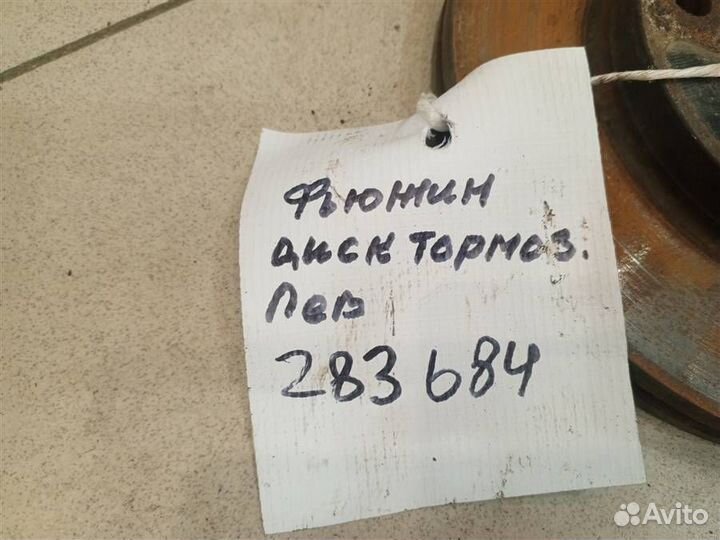 Фьюжин
диск тормоз.
Лев
283684
Avito